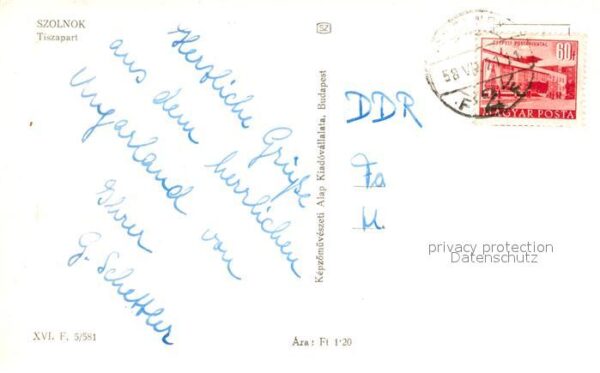 SZOLNOK
Tiszapart
Herzliche Grüße
aus dem herrlichen
Ungarland von
Ihrer
G. Schettler
XVI. F. 5/581
SZ
Képzőművészeti Alap Kiadóvállalata, Budapest
Ára: Ft 1·20
60f
MAGYAR POSTA
DDR
privacy protection
Datenschutz